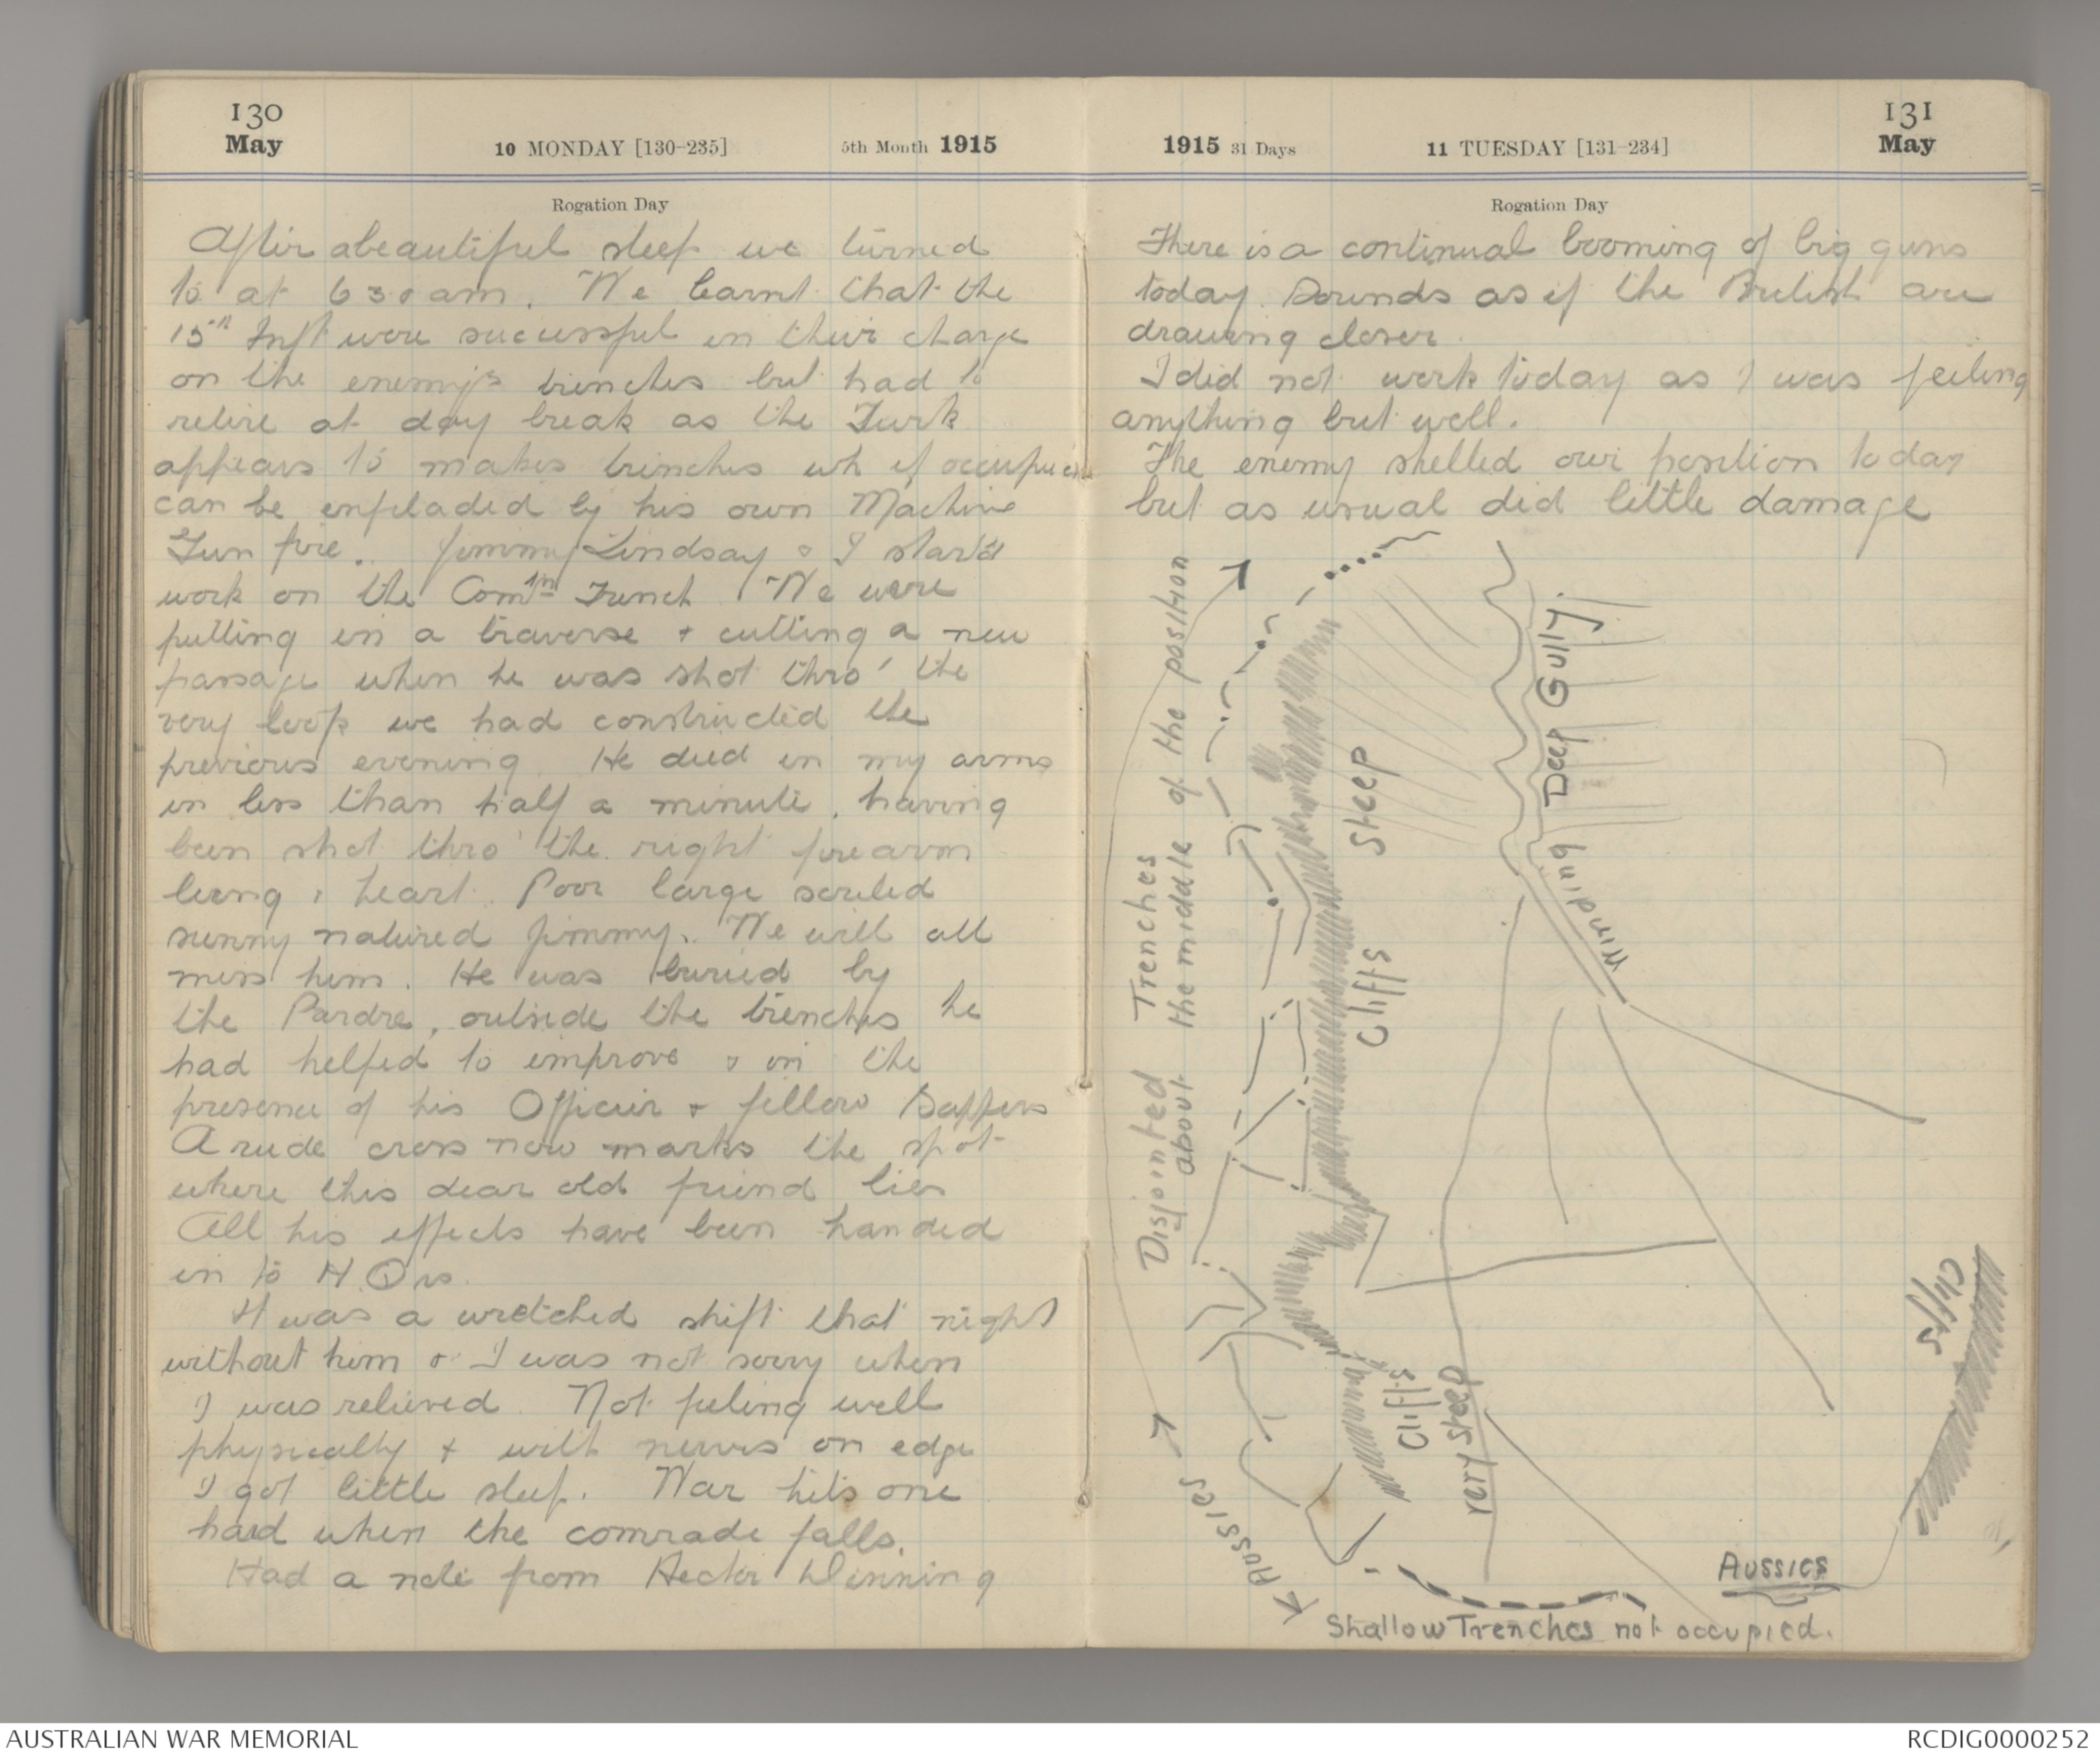 130
May
10 MONDAY [130-235]
5th Month 1915
Rogation Day
After a beautiful sleep we turned
to at 630am. We learnt that the
15th Inft were successful in their charge
on the enemy's trenches but had to
retire at day break as the Turk
appears to makes trenches wh if occupied
can be enfiladed by his own Machine
Gun fire. Jimmy Lindsay & I start'd
work on the Comtn Trench. We were
putting in a traverse + cutting a new
passage when he was shot thro' the
very loop we had constructed the
previous evening. He died in my arms
in less than half a minute, having
been shot thro' the right forearm
lung & heart. Poor large souled
sunny natured Jimmy. We will all
miss him. He was buried by
the Pardre, outside the trenches he
had helped to improve & in the
presence of his Officer + fellow Sappers
A rude cross now marks the spot
where this dear old friend lies
All his effects have been handed
in to H.Qrs.
It was a wretched shift that night
without him & I was not sorry when
I was relieved. Not feeling well
physically + with nerves on edge
I got little sleep. War hits one
hard when the comrade falls.
Had a note from Hector Dinning
131
May
1915 31 Days
11 TUESDAY [131-234]
Rogation Day
There is a continual booming of big guns
today. Sounds as if the British are
drawing closer.
I did not work today as I was feeling
anything but well.
The enemy shelled our position today
but as usual did little damage
Disjointed Trenches
about the middle of the position
Steep
Cliffs
Winding Deep Gully.
Cliffs
very steep
Cliffs
Aussies
Aussies
Shallow Trenches not occupied.
AUSTRALIAN WAR MEMORIAL
RCDIG0000252